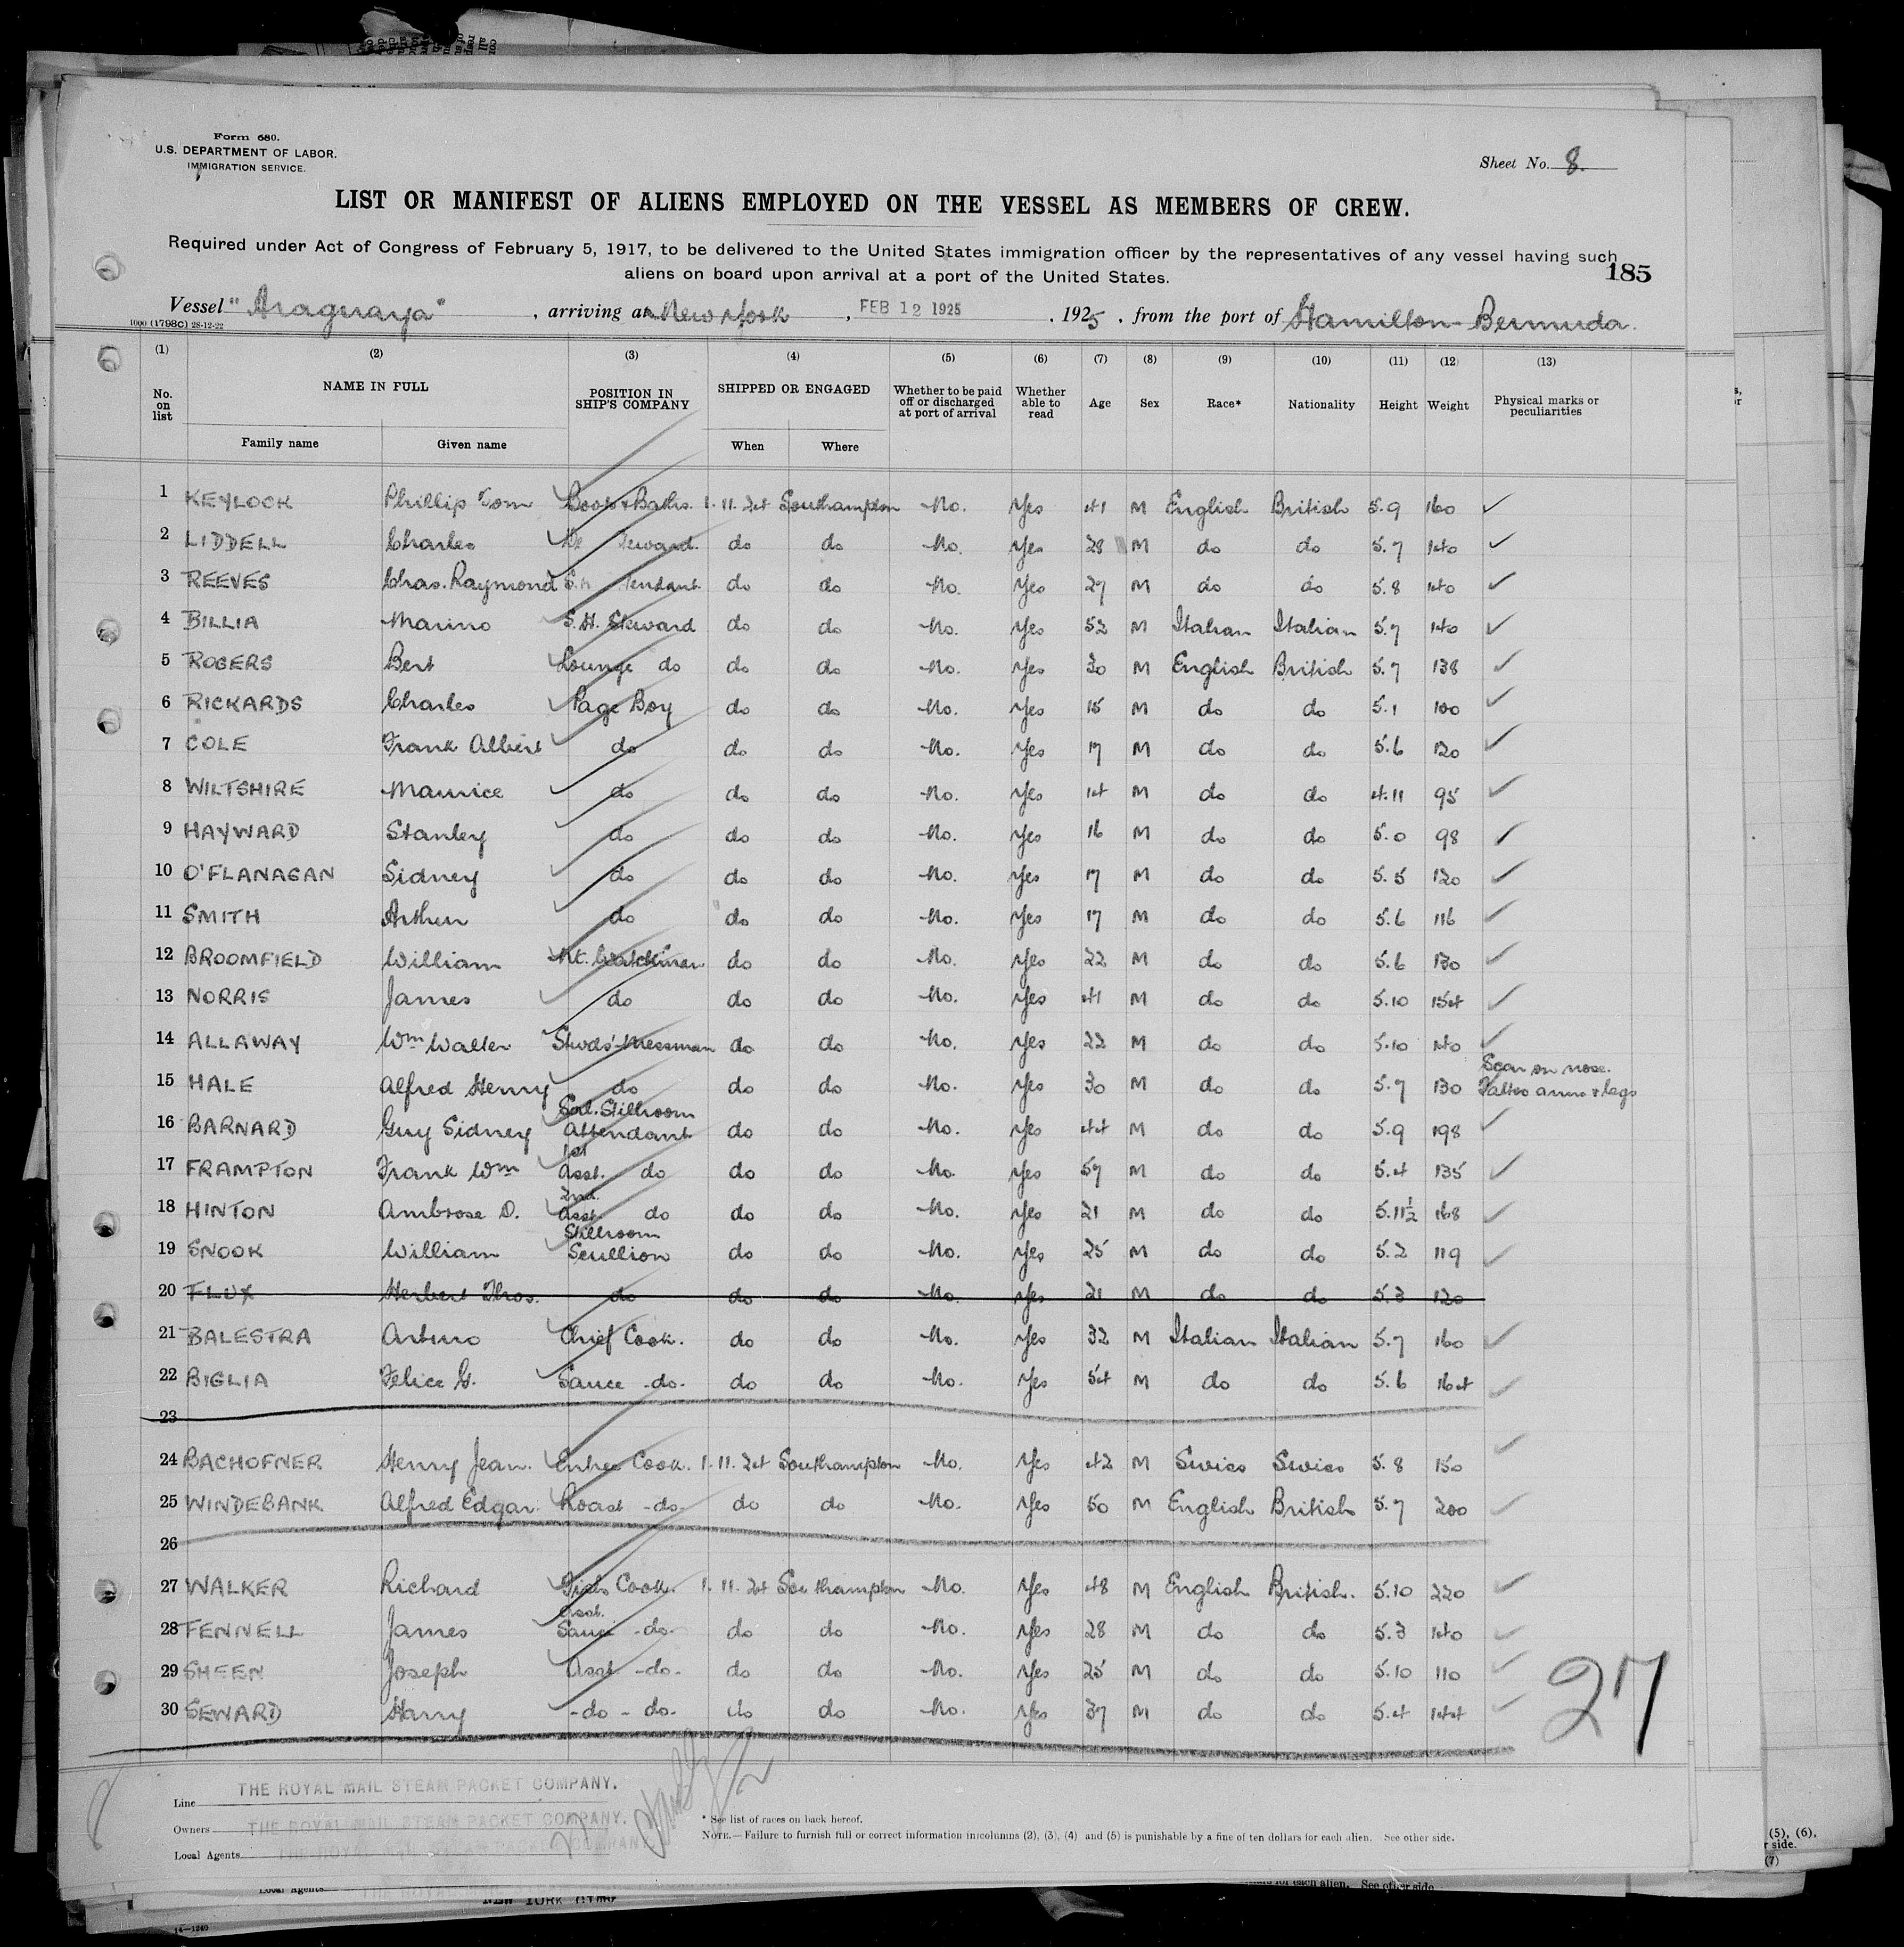 Form 680.
U.S. DEPARTMENT OF LABOR.
IMMIGRATION SERVICE.
Sheet No. 8.
LIST OR MANIFEST OF ALIENS EMPLOYED ON THE VESSEL AS MEMBERS OF CREW.
Required under Act of Congress of February 5, 1917, to be delivered to the United States immigration officer by the representatives of any vessel having such
aliens on board upon arrival at a port of the United States.
185
Vessel "Araguaya", arriving at New York, FEB 12 1925, 1925, from the port of Hamilton - Bermuda.
1000 (1798C) 28-12-22
(1) (2) (3) (4) (5) (6) (7) (8) (9) (10) (11) (12) (13)
No. on list NAME IN FULL POSITION IN SHIP'S COMPANY SHIPPED OR ENGAGED Whether to be paid off or discharged at port of arrival Whether able to read Age Sex Race* Nationality Height Weight Physical marks or peculiarities
Family name Given name When Where
1 KEYLOCK Phillip Tom Boots & Baths. 1.11.24 Southampton No. Yes 41 M English British 5.9 160
2 LIDDELL Charles do do No. Yes 28 M do do 5.7 140
3 REEVES Chas. Raymond do do No. Yes 27 M do do 5.8 140
4 BILLIA Marino S.H. Steward do do No. Yes 52 M Italian Italian 5.7 140
5 ROGERS Bert Lounge do do do No. Yes 30 M English British 5.7 138
6 RICKARDS Charles Page Boy do do No. Yes 15 M do do 5.1 100
7 COLE Frank Albert do do do No. Yes 17 M do do 5.6 120
8 WILTSHIRE Maurice do do do No. Yes 14 M do do 4.11 95
9 HAYWARD Stanley do do do No. Yes 16 M do do 5.0 98
10 O'FLANAGAN Sidney do do do No. Yes 17 M do do 5.5 120
11 SMITH Arthur do do do No. Yes 17 M do do 5.6 116
12 BROOMFIELD William Nt. Watchman do do No. Yes 22 M do do 5.6 130
13 NORRIS James do do do No. Yes 41 M do do 5.10 154
14 ALLAWAY Wm Walter Stwds' Messman do do No. Yes 22 M do do 5.10 140
15 HALE Alfred Henry do do do No. Yes 30 M do do 5.7 130 Scar on nose. Tattoo arms & legs
16 BARNARD Guy Sidney Sal. Stillroom Attendant do do No. Yes 44 M do do 5.9 198
17 FRAMPTON Frank Wm 1st Asst. do do do No. Yes 57 M do do 5.4 135
18 HINTON Ambrose D. 2nd. Asst. do do do No. Yes 21 M do do 5.11½ 168
19 SNOOK William Stillroom Scullion do do No. Yes 25 M do do 5.2 119
20 FLUX Herbert Thos. do do do No. Yes 21 M do do 5.3 120
21 BALESTRA Arturo Chief Cook. do do No. Yes 32 M Italian Italian 5.7 160
22 BIGLIA Felice G. Sauce -do- do do No. Yes 54 M do do 5.6 164
23
24 BACHOFNER Henry Jean. Entree Cook. 1.11.24 Southampton No. Yes 42 M Swiss Swiss 5.8 150
25 WINDEBANK Alfred Edgar. Roast -do- do do No. Yes 50 M English British 5.7 200
26
27 WALKER Richard Fish Cook. 1.11.24 Southampton No. Yes 48 M English British. 5.10 220
28 FENNELL James Asst. Sauce -do- do do No. Yes 28 M do do 5.3 140
29 SHEEN Joseph Asst -do- do do No. Yes 25 M do do 5.10 110
30 SEWARD Harry -do- do- do do No. Yes 37 M do do 5.4 144
27
Line THE ROYAL MAIL STEAM PACKET COMPANY.
Owners THE ROYAL MAIL STEAM PACKET COMPANY.
Local Agents
* See list of races on back hereof.
NOTE.—Failure to furnish full or correct information in columns (2), (3), (4) and (5) is punishable by a fine of ten dollars for each alien. See other side.